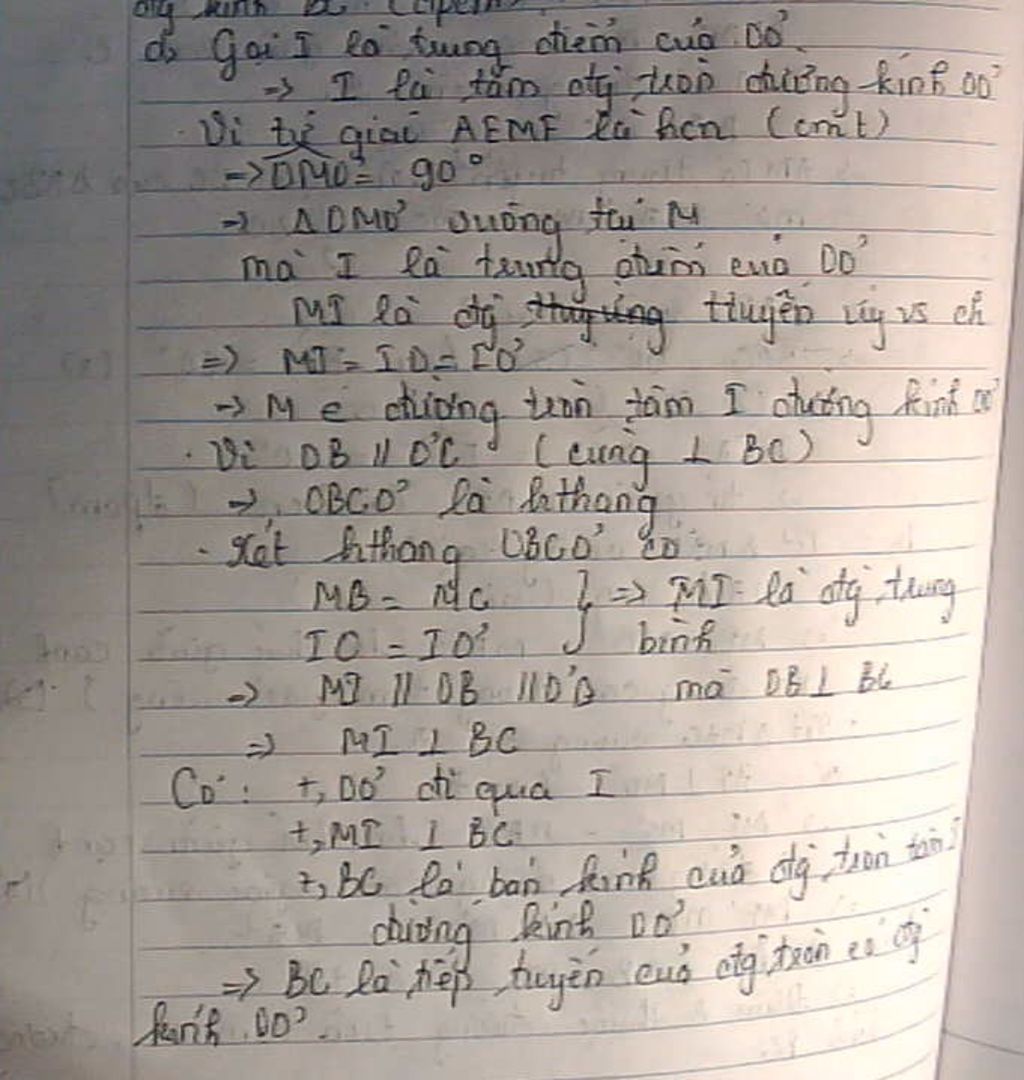 đg kính BC (đpcm)
d, Gọi I là trung điểm của OO'
=> I là tâm đg tròn đường kính OO'
. Vì tứ giác AEMF là hcn (cmt)
=> OMO' = 90°
=> Δ OMO' vuông tại M
mà I là trung điểm của OO'
MI là đg truyến ứng vs ch
=> MI = IO = IO'
=> M ∈ đường tròn tâm I đường kính OO'
. Vì OB // O'C (cùng ⊥ BC)
=> OBCO' là hthang
- Xét hthang OBCO' có:
MB = MC } => MI là đg trung
IO = IO' bình
=> MI // OB // O'B mà OB ⊥ BC
=> MI ⊥ BC
Có: +, OO' đi qua I
+, MI ⊥ BC
+, BC là bán kính của đg tròn tâm I
đường kính OO'
=> BC là tiếp tuyến của đg tròn có đg
kính OO'.